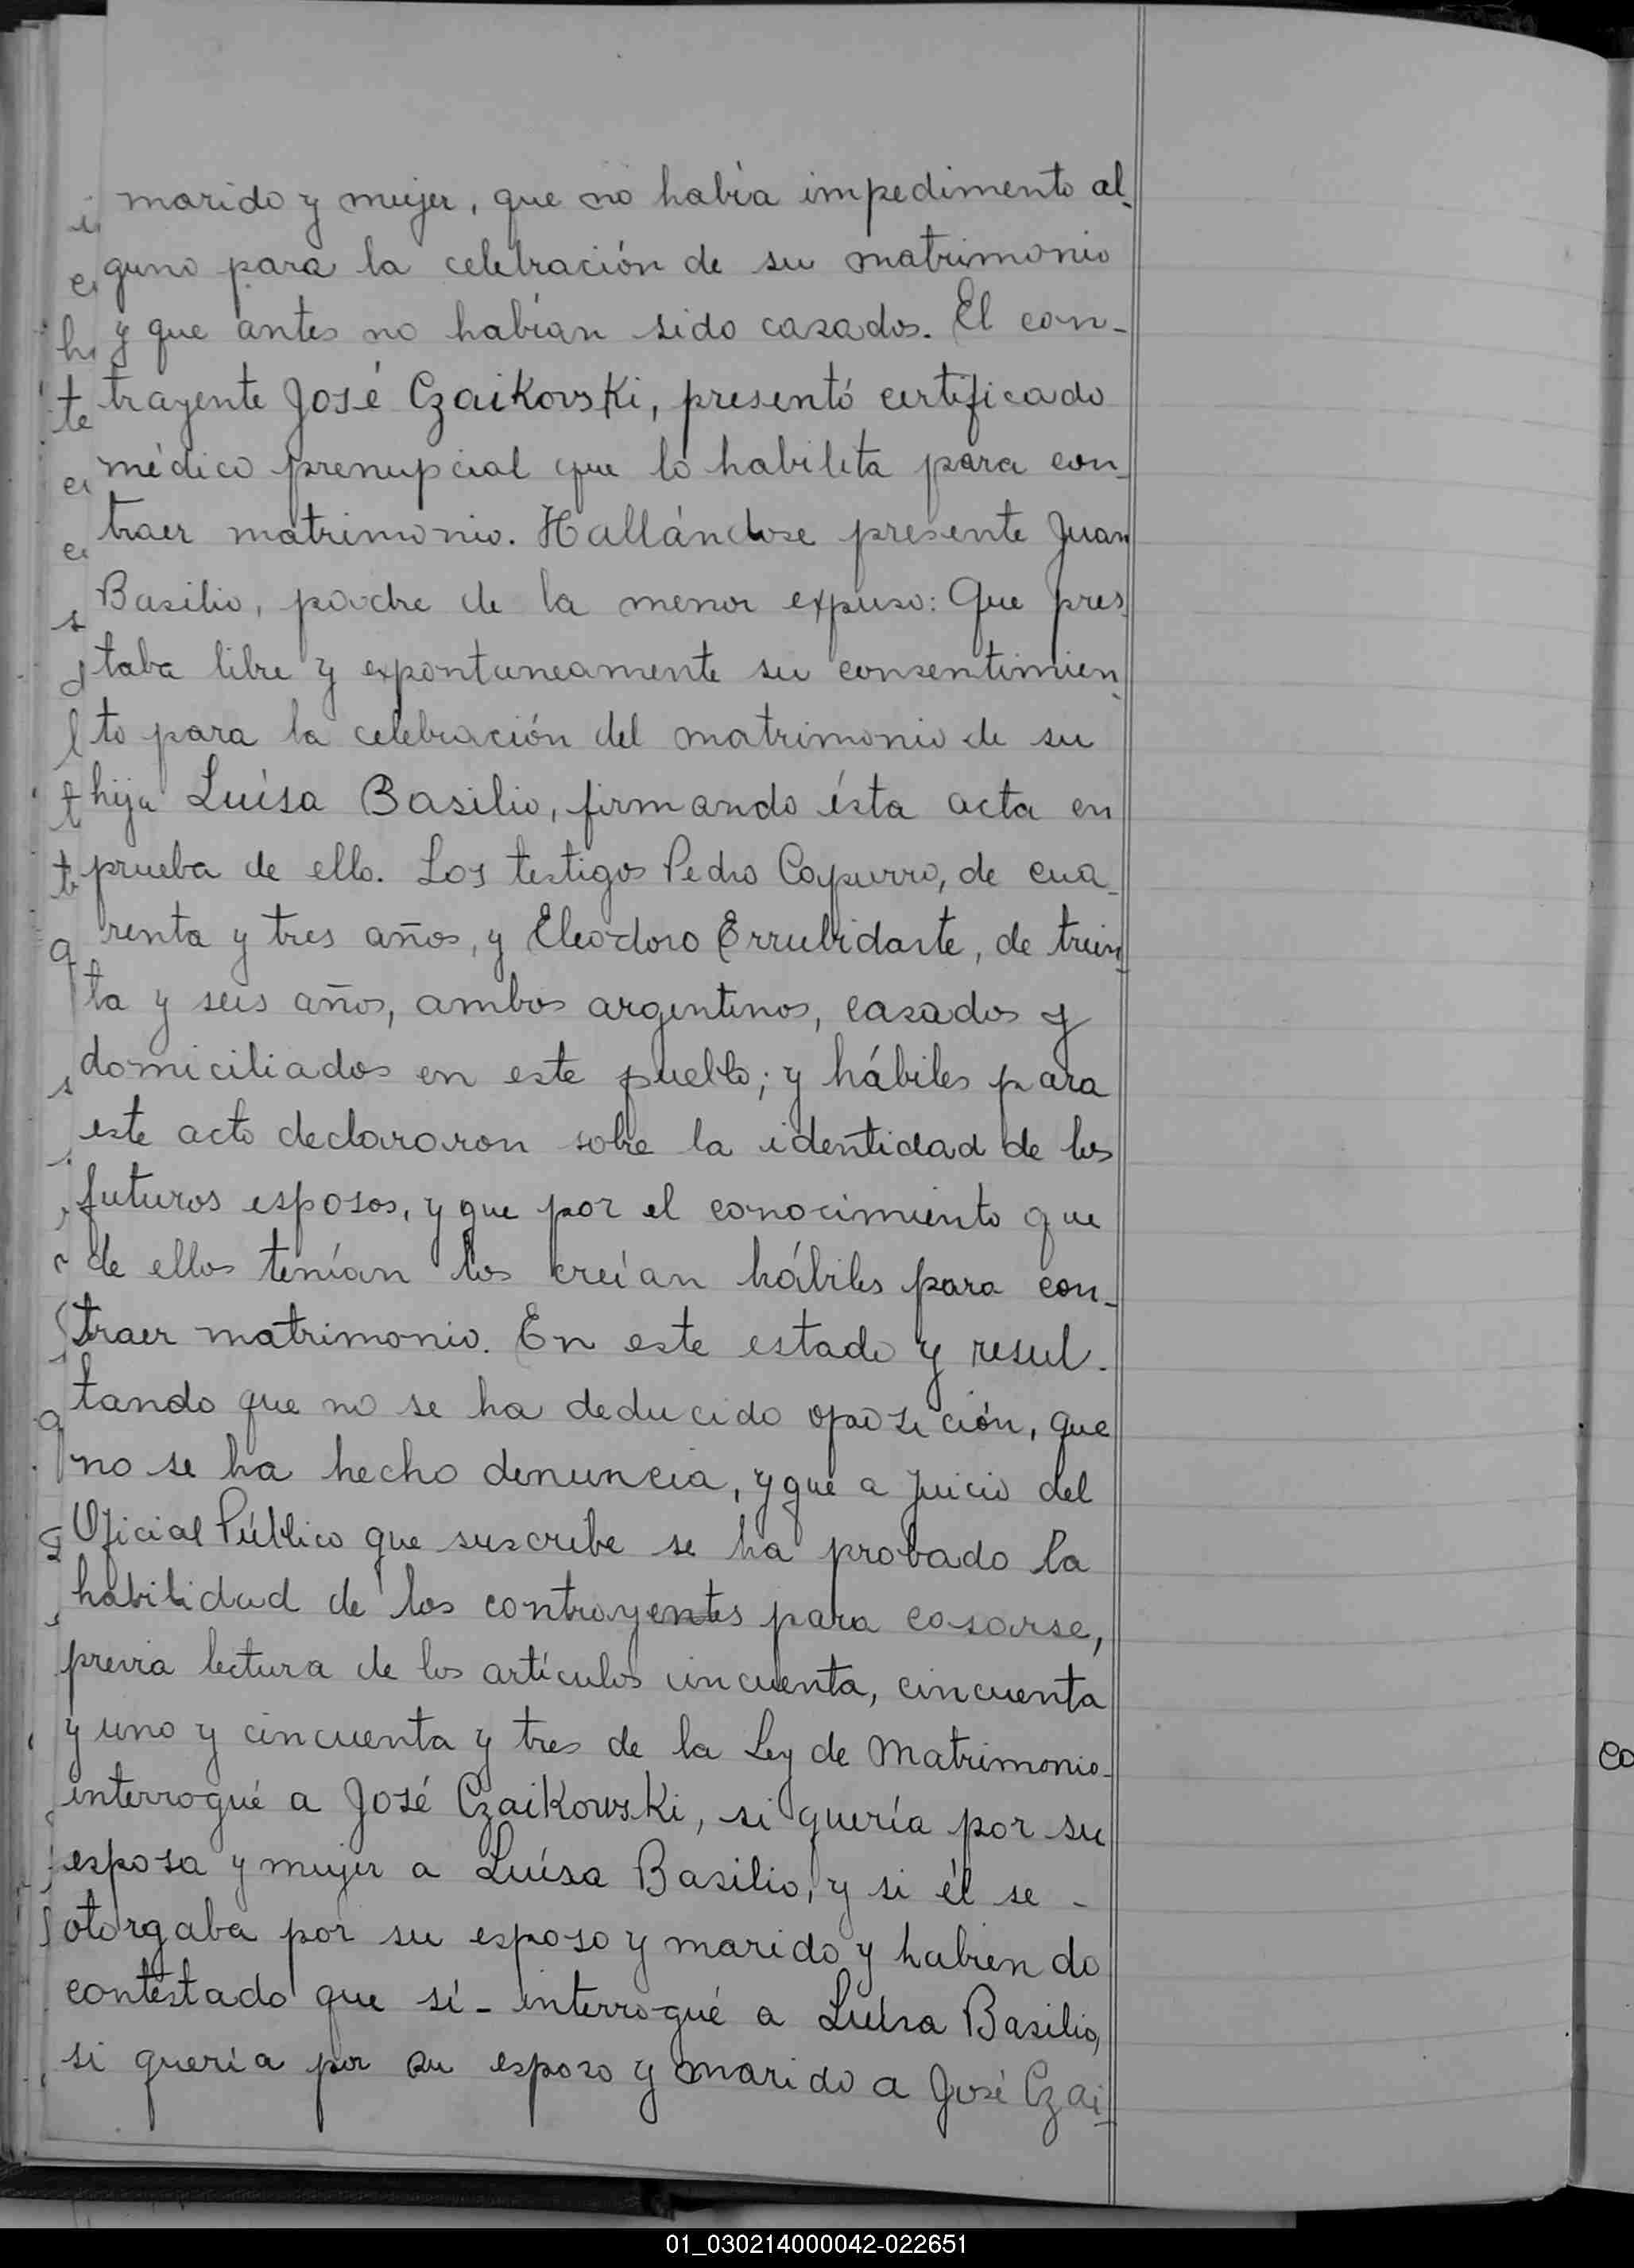 marido y mujer, que no había impedimento al-
guno para la celebración de su matrimonio
y que antes no habían sido casados. El con-
trayente José Czaikowski, presentó certificado
médico prenupcial que lo habilita para con-
traer matrimonio. Hallándose presente Juan
Basilio, padre de la menor expuso: Que pres-
taba libre y expontaneamente su consentimien-
to para la celebración del matrimonio de su
hija Luísa Basilio, firmando ésta acta en
prueba de ello. Los testigos Pedro Capurro, de cua-
renta y tres años, y Eleodoro Errubidarte, de trein-
ta y seis años, ambos argentinos, casados y
domiciliados en este pueblo; y hábiles para
este acto declararon sobre la identidad de los
futuros esposos, y que por el conocimiento que
de ellos tenían los creían hábiles para con-
traer matrimonio. En este estado y resul-
tando que no se ha deducido oposición, que
no se ha hecho denuncia, y que a juicio del
Oficial Público que suscribe se ha probado la
habilidad de los contrayentes para casarse,
previa lectura de los artículos cincuenta, cincuenta
y uno y cincuenta y tres de la Ley de Matrimonio-
interrogué a José Czaikowski, si quería por su
esposa y mujer a Luísa Basilio, y si él se -
otorgaba por su esposo y marido y habiendo
contestado que sí - interrogué a Luísa Basilio,
si quería por su esposo y marido a José Czai-
01_030214000042-022651